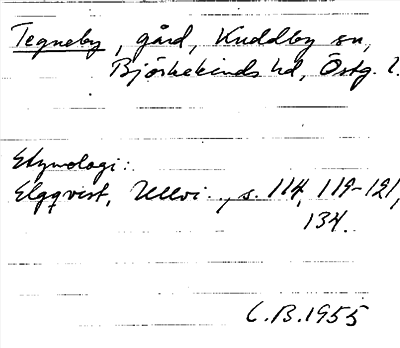 Tegneby, gård, Kuddby sn,
Björkekinds hd, Östg. l.
Etymologi:
Elgqvist, Ullvi.., s. 114, 119-121,
134.
C.B. 1955